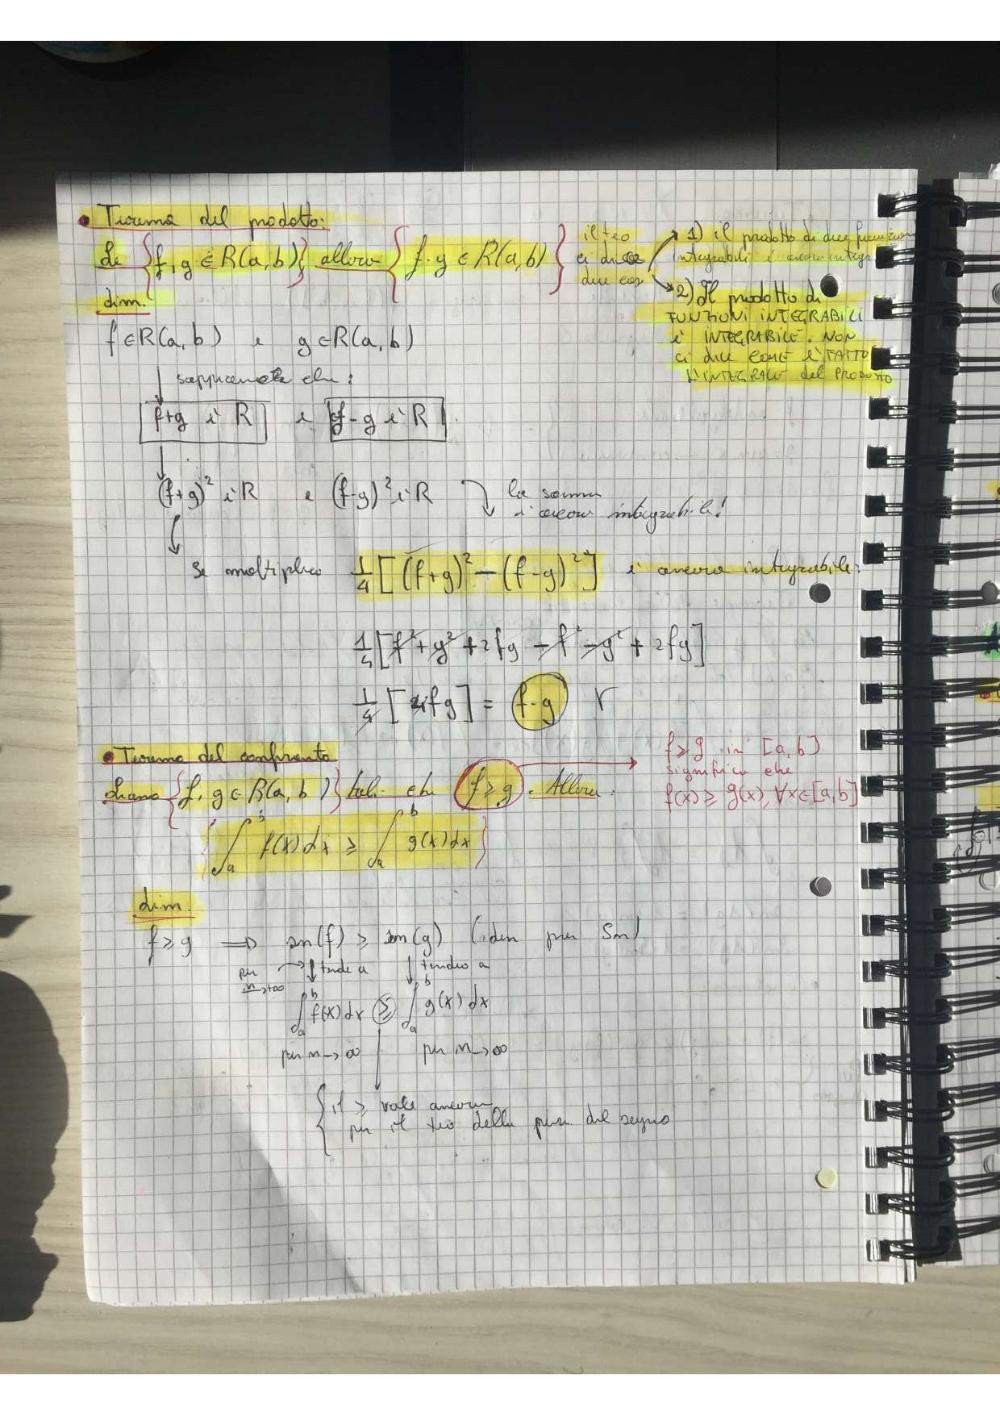 • Teorema del prodotto:
Se {f, g ∈ R(a, b)} allora {f·g ∈ R(a, b)}
il teo
ci dice
due cose
1) il prodotto di due funzioni
integrabili è ancora integr
2) Il prodotto di
FUNZIONI INTEGRABILI
è INTEGRABILE. NON
ci dice COME è FATTO
L'INTEGRALE del PRODOTTO
dim.
f ∈ R(a, b) e g ∈ R(a, b)
sappiamo che:
f+g è R e f-g è R
(f+g)² è R e (f-g)² è R
la somma
è ancora integrabile!
Se moltiplico 1/4 [(f+g)² - (f-g)²] è ancora integrabile:
1/4 [f² + g² + 2fg - f² - g² + 2fg]
1/4 [4fg] = f·g
• Teorema del confronto
Siano {f, g ∈ R(a, b)} tali che f ≥ g. Allora:
f ≥ g in [a, b]
significa che
f(x) ≥ g(x), ∀x ∈ [a, b]
{∫ₐᵇ f(x) dx ≥ ∫ₐᵇ g(x) dx}
dim.
f ≥ g ⟹ sn(f) ≥ sn(g) (idem per Sn)
per n→+∞ tende a tendono a
∫ₐᵇ f(x) dx ≥ ∫ₐᵇ g(x) dx
per n→∞ per n→∞
{il ≥ vale ancora
per il teo della perm del segno